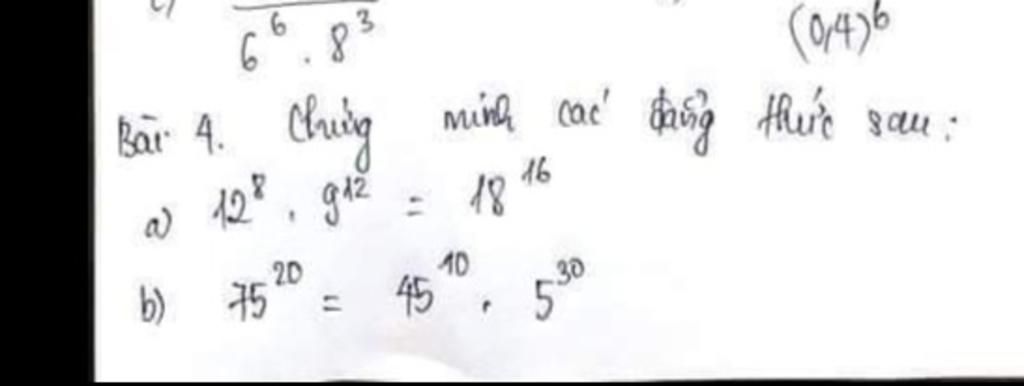 6⁶ . 8³ (0,4)⁶
Bài 4. Chứng minh các đẳng thức sau:
a) 12⁸ . 9¹² = 18¹⁶
b) 75²⁰ = 45¹⁰ . 5³⁰